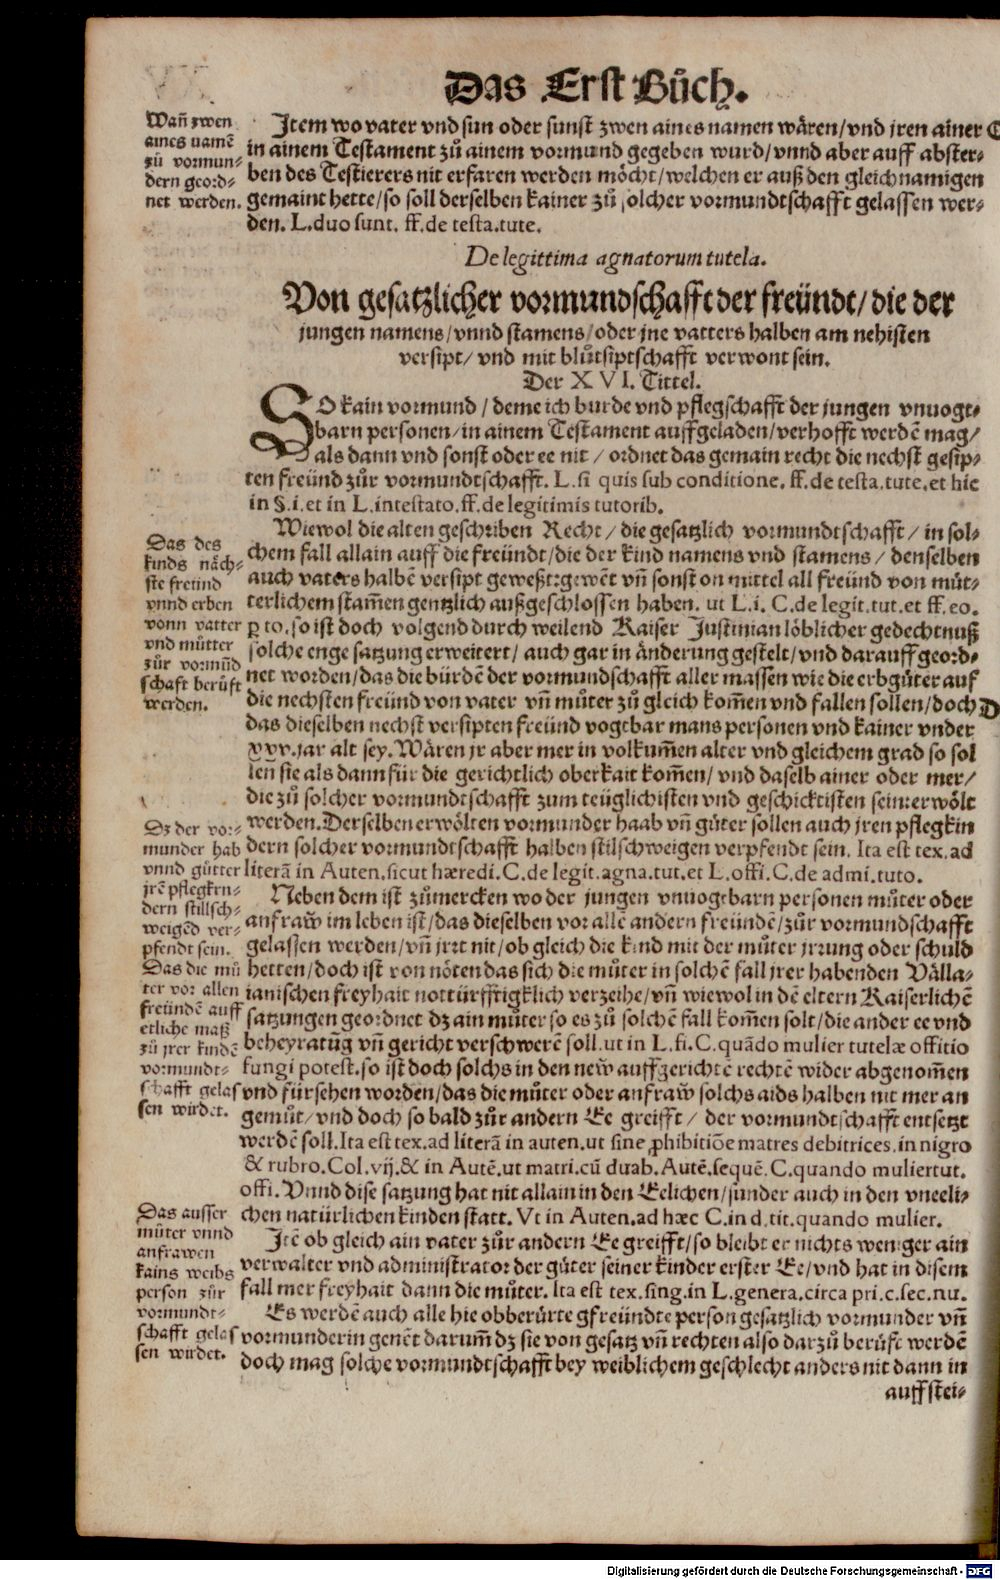 Das Erst Bůch.
Wañ zwen
aines namē
zů vormun-
dern geord-
net werden.
Item wo vater vnd sun oder sunst zwen aines namen wären/vnd jren ainer
C
in ainem Testament zů ainem vormund gegeben wurd/vnnd aber auff abster-
ben des Testierers nit erfaren werden möcht/welchen er auß den gleichnamigen
gemaint hette/so soll derselben kainer zů solcher vormundtschafft gelassen wer-
den. L.duo sunt. ff.de testa.tute.
De legittima agnatorum tutela.
Von gesatzlicher vormundschafft der freündt/die der
jungen namens/vnnd stamens/oder jne vatters halben am nehisten
versipt/vnd mit blůtsiptschafft verwont sein.
Der XVI. Tittel.
SO kain vormund/deme ich burde vnd pflegschafft der jungen vnuogt-
barn personen/in ainem Testament auffgeladen/verhofft werdē mag/
als dann vnd sonst oder ee nit/ordnet das gemain recht die nechst gesip-
ten freünd zůr vormundtschafft. L.si quis sub conditione. ff.de testa.tute.et hic
in §.i.et in L.intestato.ff.de legitimis tutorib.
Das des
kinds näch-
ste freünd
vnnd erben
vonn vatter
vnd můtter
zůr vormūd
schaft berůft
werden.
Wiewol die alten geschriben Recht/die gesatzlich vormundtschafft/in sol-
chem fall allain auff die freündt/die der kind namens vnd stamens/denselben
auch vaters halbē versipt geweßt:gewēt vñ sonst on mittel all freünd von můt-
terlichem stam̄en gentzlich außgeschlossen haben. ut L.i. C.de legit.tut.et ff.eo.
ꝑ to.so ist doch volgend durch weilend Kaiser Justinian löblicher gedechtnuß
solche enge satzung erweitert/auch gar in änderung gestelt/vnd darauff geord-
net worden/das die bürdē der vormundschafft aller massen wie die erbgüter auf
die nechsten freünd von vater vñ můter zů gleich kom̄en vnd fallen sollen/doch
D
das dieselben nechst versipten freünd vogtbar mans personen vnd kainer vnder
xxv.jar alt sey. Wären jr aber mer in volkum̄en alter vnd gleichem grad so sol
len sie als dann für die gerichtlich oberkait kom̄en/vnd daselb ainer oder mer/
die zů solcher vormundtschafft zum teüglichisten vnd geschicktisten sein:erwölt
werden. Derselben erwölten vormunder haab vñ güter sollen auch jren pflegkin
dern solcher vormundtschafft halben stilschweigen verpfendt sein. Ita est tex.ad
literā in Auten.sicut hæredi.C.de legit.agna.tut.et L.offi.C.de admi.tuto.
Dz der vor-
munder hab
vnnd gütter
jrē pflegkin-
dern stillsch-
weigēd ver-
pfendt sein.
Das die mů
ter vor allen
freündē auff
etliche maß
zů jrer kindē
vormundt-
schafft gelas
sen wirdet.
Neben dem ist zůmercken wo der jungen vnuogtbarn personen můter oder
anfraw̄ im leben ist/das dieselben vor allē andern freündē/zůr vormundschafft
gelassen werden/vñ jrrt nit/ob gleich die kind mit der můter jrrung oder schuld
hetten/doch ist von nöten das sich die můter in solchē fall jrer habenden Välla-
ianischen freyhait notturfftigklich verzeihe/vñ wiewol in dē eltern Kaiserlichē
satzungen geordnet dz ain můter so es zů solchē fall kom̄en solt/die ander ee vnd
beheyratūg vñ gericht verschwerē soll.ut in L.fi.C.quādo mulier tutelæ offitio
fungi potest.so ist doch solchs in den new̄ auffgerichtē rechtē wider abgenom̄en
vnd fürsehen worden/das die můter oder anfraw̄ solchs aids halben nit mer an
gemůt/vnd doch so bald zůr andern Ee greifft/der vormundtschafft entsetzt
werdē soll.Ita est tex.ad literā in auten.ut sine ꝓhibitiōe matres debitrices.in nigro
& rubro.Col.vij.& in Autē.ut matri.cū duab.Autē.sequē.C.quando mulier tut.
offi. Vnnd dise satzung hat nit allain in den Eelichen/sunder auch in den vneeli-
chen natürlichen kinden statt. Vt in Auten.ad hæc C.in d.tit.quando mulier.
Das ausser
můter vnnd
anfrawen
kains weibs
person zůr
vormundt-
schafft gelas
sen wirdet.
Itē ob gleich ain vater zůr andern Ee greifft/so bleibt er nichts weniger ain
verwalter vnd administrator der güter seiner kinder erster Ee/vnd hat in disem
fall mer freyhait dann die můter. Ita est tex.sing.in L.genera.circa pri.c.sec.nu.
Es werdē auch alle hie obberürte gfreündte person gesatzlich vormunder vñ
vormunderin genēt darum̄ dz sie von gesatz vñ rechten also darzů berůft werdē
doch mag solche vormundtschafft bey weiblichem geschlecht anders nit dann in
auffstei-
Digitalisierung gefördert durch die Deutsche Forschungsgemeinschaft - DFG